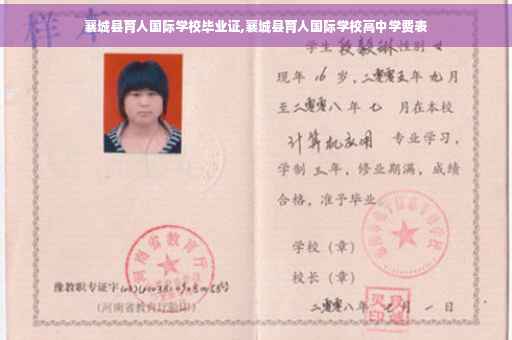 襄城县育人国际学校毕业证,襄城县育人国际学校高中学费表
样本
学生 段毅琳 性别 女
现年 16 岁,二零零五年 九月
至二零零八年 七 月在本校
计算机应用 专业学习,
学制 三 年,修业期满,成绩
合格,准予毕业
学校(章)
校长(章)
二零零八年 七 月 一 日
河南省教育厅
豫教职专证字
(河南省教育厅验印)